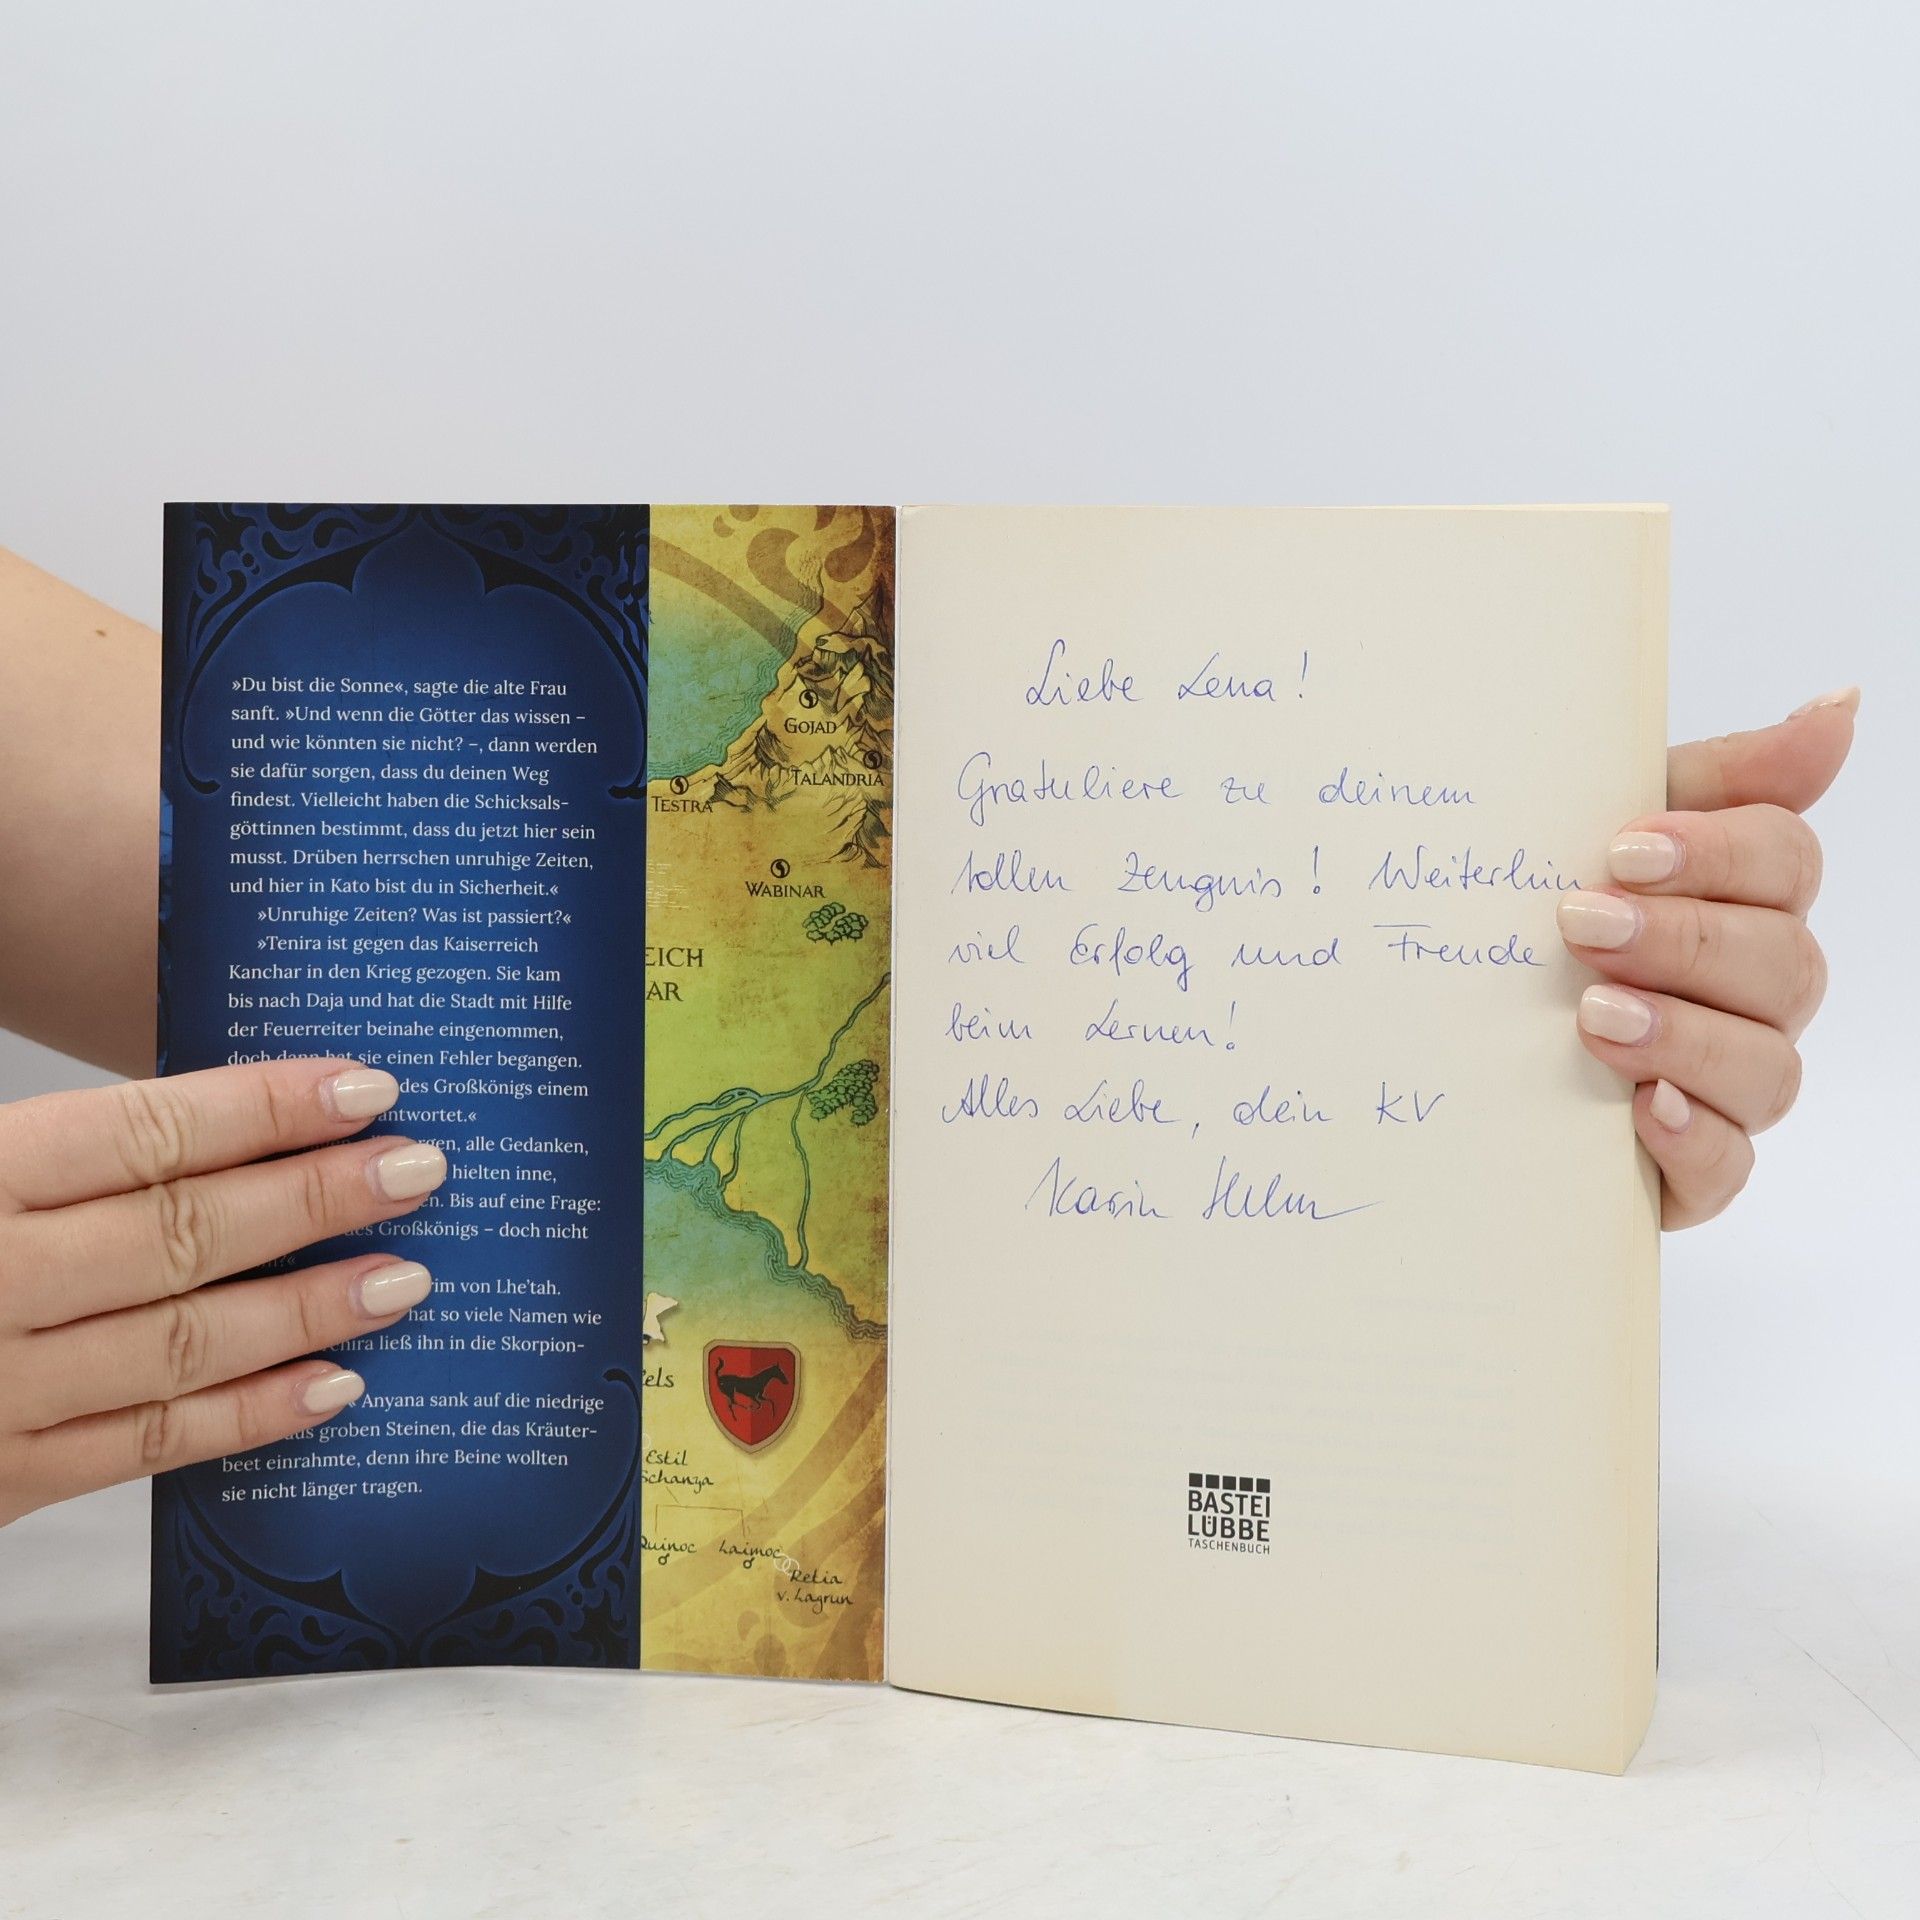 »Du bist die Sonne«, sagte die alte Frau
sanft. »Und wenn die Götter das wissen –
und wie könnten sie nicht? –, dann werden
sie dafür sorgen, dass du deinen Weg
findest. Vielleicht haben die Schicksals-
göttinnen bestimmt, dass du jetzt hier sein
musst. Drüben herrschen unruhige Zeiten,
und hier in Kato bist du in Sicherheit.«
»Unruhige Zeiten? Was ist passiert?«
»Tenira ist gegen das Kaiserreich
Kanchar in den Krieg gezogen. Sie kam
bis nach Daja und hat die Stadt mit Hilfe
der Feuerreiter beinahe eingenommen,
doch dann hat sie einen Fehler begangen.
des Großkönigs einem
antwortet.«
alle Gedanken,
hielten inne,
Bis auf eine Frage:
des Großkönigs – doch nicht
von Lhe'tah.
hat so viele Namen wie
ließ ihn in die Skorpion-
Anyana sank auf die niedrige
aus groben Steinen, die das Kräuter-
beet einrahmte, denn ihre Beine wollten
sie nicht länger tragen.
GOJAD
TALANDRIA
TESTRA
WABINAR
EICH
AR
els
Estil
Schanya
Quinoc
Laimoc
Retia
v. Lagrun
Liebe Lena!
Gratuliere zu deinem
tollen Zeugnis! Weiterhin
viel Erfolg und Freude
beim Lernen!
Alles Liebe, dein KV
Karin
BASTEI
LÜBBE
TASCHENBUCH